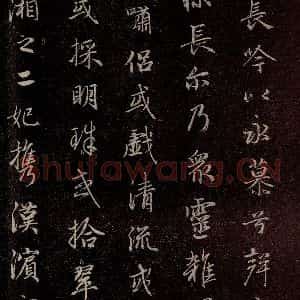 長吟以永慕兮聲
長尔乃衆靈雜
嘯侣或戲清流或
或採明珠或拾翠
湘之二妃攜漢濱
shufawang.CN